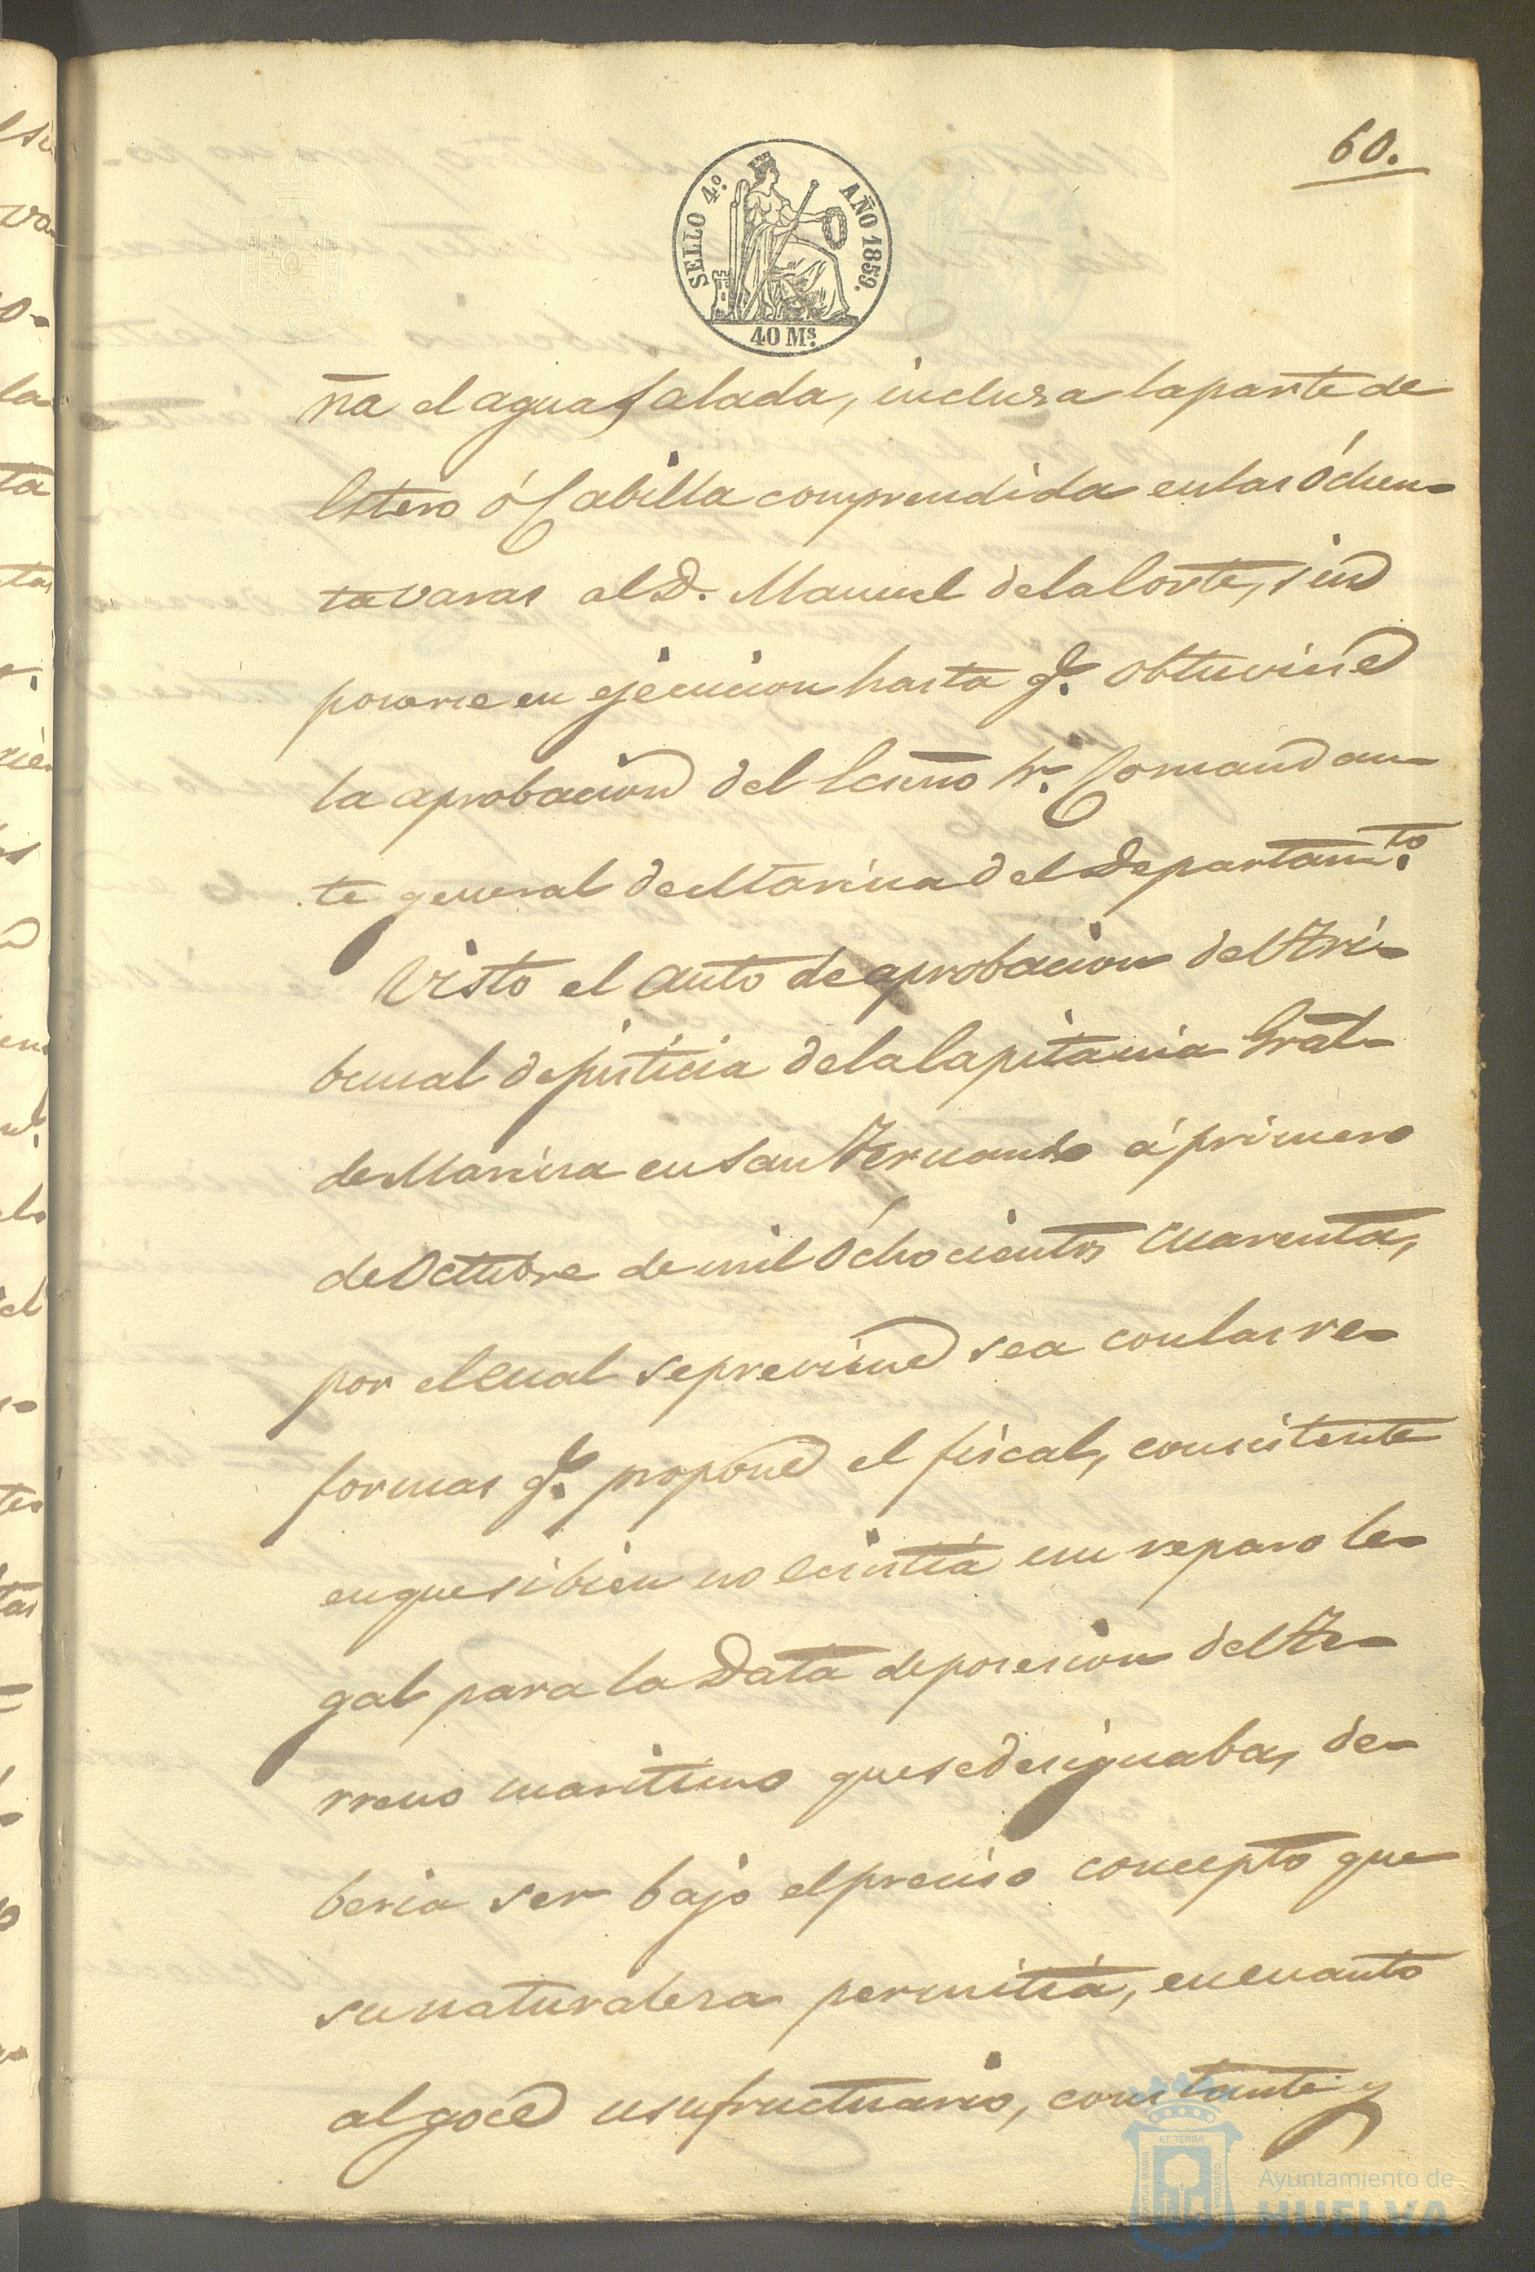 60.
SELLO 4.º AÑO 1859.
40 Ms.
ña el agua salada, inclusa la parte de
Estero ó Cabilla comprendida en las óchen-
ta varas al D. Manuel de la Corte, sin
ponerse en ejecucion hasta q.e obtuviese
la aprobacion del Ecsmo Sr. Comandan-
te general de Marina del Departam.to
Visto el auto de aprobacion del Tri-
bunal de justicia de la Capitania Gral-
de Marina en San Fernando á primero
de Octubre de mil óchocientos cuarenta,
por el cual se previene sea con las re-
formas q.e propone el fiscal, concistente
en que si bien no ecsistia un reparo le-
gal para la Data de posesion del Te-
rreno maritimo que se designaba, de-
beria ser bajo el preciso concepto que
su naturaleza permitia, en cuanto
al goce usufructuario, constante y
Ayuntamiento de
HUELVA